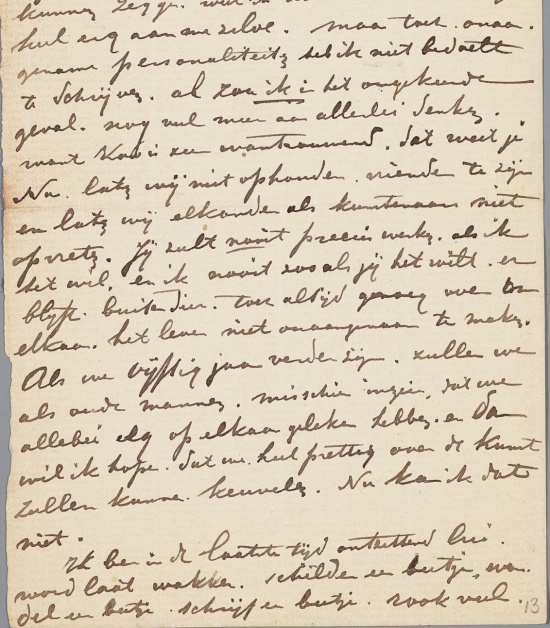 kunnen zeggen. wat
heel erg aan me zelve. maa toch onaa.
gename personaliteitz heb ik niet bedoelt
te schrijven. al zou ik in het omgekeerde
geval. nog veel meer aan allerlei denken.
want Ko is zeer wantrouwend. dat weet je
Nu. laten wij niet ophouden. vrienden te zijn
en laten wij elkander als kunstenaars niet
opvreten. Jij zult nooit precies werken. als ik
het wil. en ik nooit zooals jij het wilt. er
blijft. buitendien. toch altijd genoeg over om
elkaa. het leven niet onaangenaam te maken.
Als we vijftig jaar verder zijn. zullen we
als oude mannen. misschien inzien, dat we
allebei erg op elkaar geleken hebben. en dan
wil ik hopen. dat we. heel prettig over de kunst
zullen kunnen. keuvelen. Nu kan ik dat
niet.
Ik ben in de laatste tijd ontzettend lui.
word laat wakker. schilder een beetje, wan.
del een beetje. schrijf een beetje. rook veel.
13